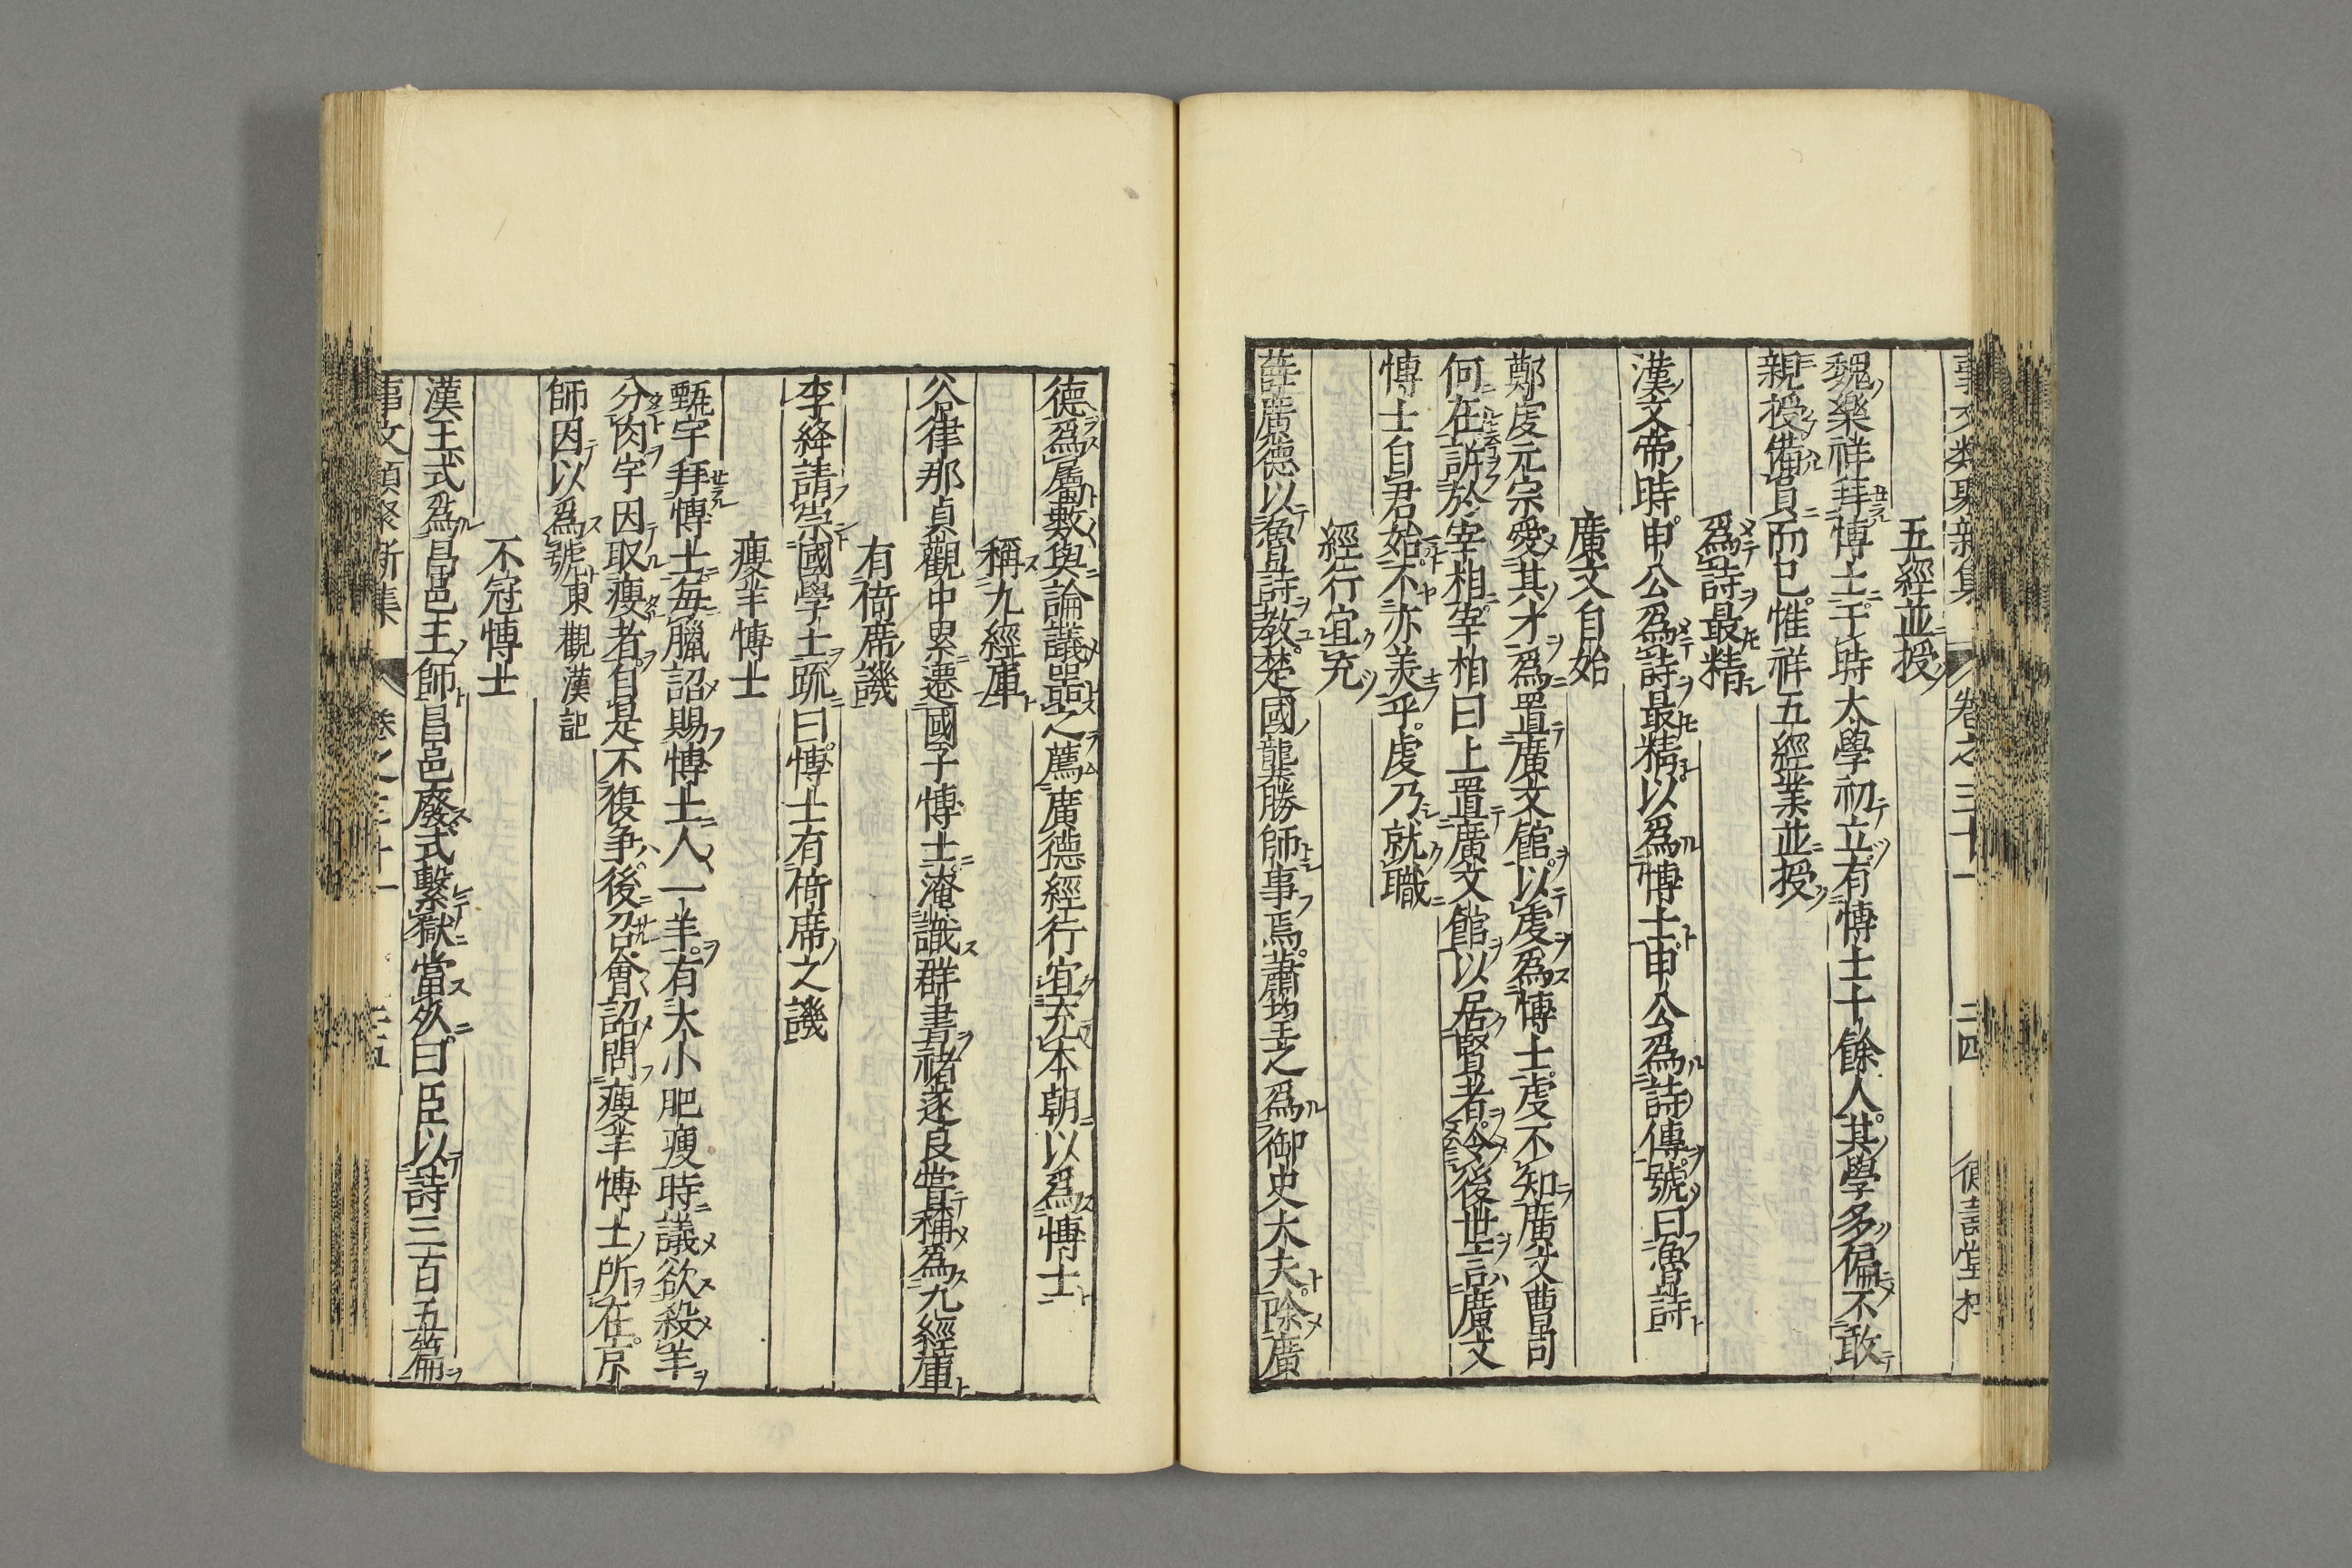 事文類聚新集 卷之三十一 三四
五經並授
魏樂祥拜博士于時太學初立有博士十餘人其學多偏不敢
親授備員而已惟祥五經業並授
爲詩最精
漢文帝時申公爲詩最精以爲博士申公爲詩傳號曰魯詩
廣文自始
鄭虔元宗愛其才爲置廣文館以虔爲博士虔不知廣文曹司
何在訴於宰相宰相曰上置廣文館以居賢者令後世言廣文
博士自君始不亦美乎虔乃就職
經行宜充
薛廣德以魯詩教楚國龔勝師事焉蕭望之爲御史大夫除廣
德爲屬數與論議器之薦廣德經行宜充本朝以爲博士
稱九經庫
谷律那貞觀中累遷國子博士淹識群書褚遂良嘗稱爲九經庫
有倚席譏
李絳請崇國學上疏曰博士有倚席之譏
瘦羊博士
甄宇拜博士每臘詔賜博士人一羊有大小肥瘦時議欲殺羊
分肉宇因取瘦者自是不復爭後召會詔問瘦羊博士所在京
師因以爲號東觀漢記
不冠博士
漢王式爲昌邑王師昌邑廢式繫獄當死曰臣以詩三百五篇
事文類聚新集 卷之三十一 三五